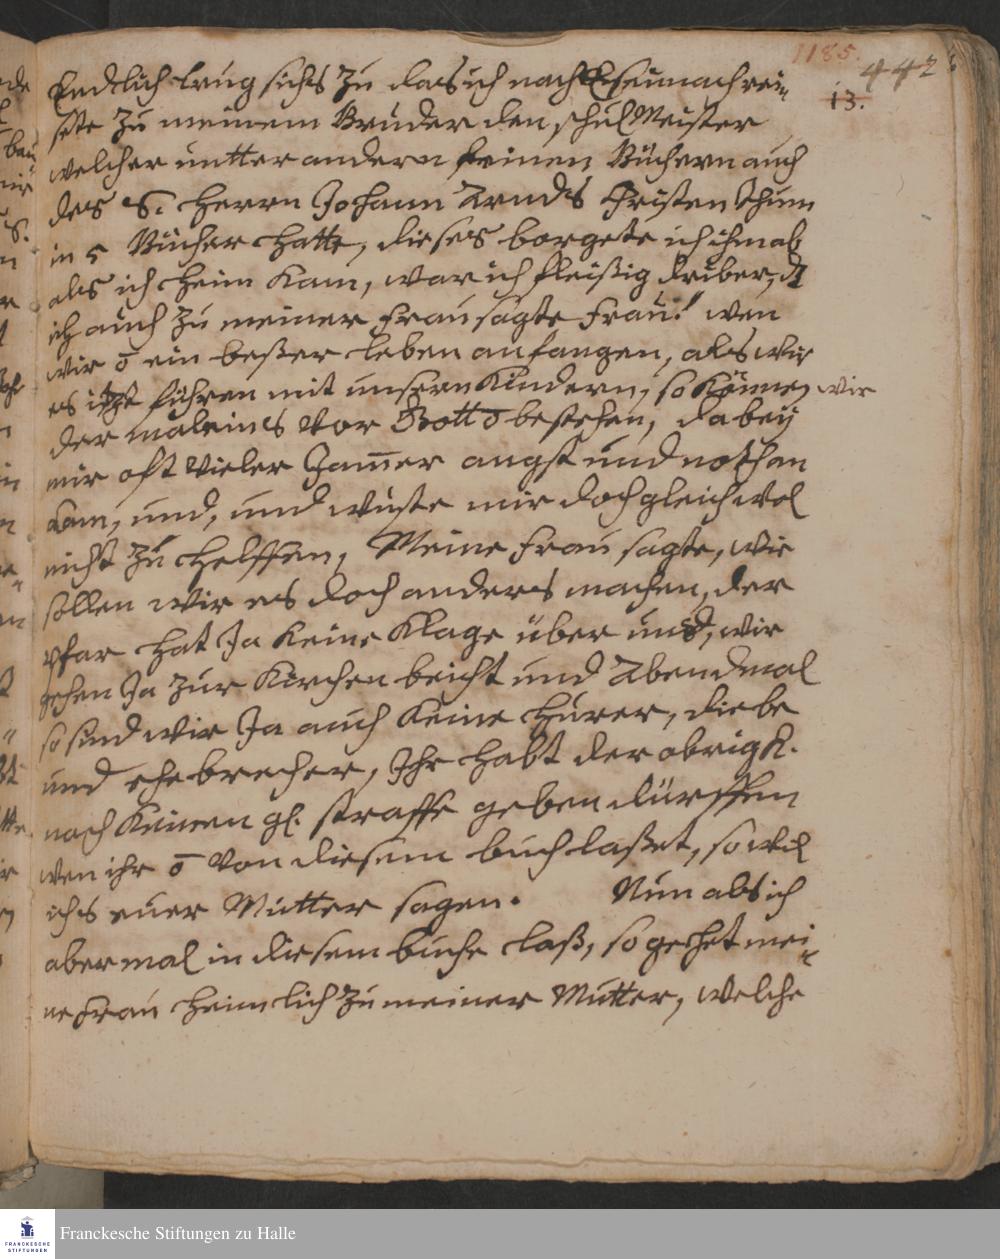 1185.
442
13.
Endtlich trug sichs zu das ich nach Eisennach rei-
sete zu meinem Bruder den schul Meister
welcher untter andern seinen Büchern auch
des S. Herrn Johann Arnds Christenthum
in 5 Bücher hatte, dieses borgete ich ihm ab
als ich heim kam, war ich fleißig drüber, dz
ich auch zu meiner Frau sagte Frau! wen
wir ō ein beßer leben anfangen, als wir
es itzt führen mit unsern Kindern, so können wir
der maleins vor Gott ō bestehen, dabey
mir oft vieler Jam̅er angst und noth an
kam, und, und wuste mir doch gleich wol
nicht zu helffen, Meine frau sagte, wie
sollen wir es doch anders machen, der
pfar hat Ja keine Klage über uns, wir
gehen Ja zur Kirchen beicht und Abendmal
so sind wir Ja auch keine hurer, diebe
und ehebrecher, Ihr habt der obrigk.
noch keinen gl. straffe geben dürffen
wen ihr ō von diesem buch laßet, so wil
ichs euer Mutter sagen. Nun als ich
abermal in diesem buche laß, so gehet mei-
ne Frau heimlich zu meiner Mutter, welche
FRANCKESCHE
STIFTUNGEN
Franckesche Stiftungen zu Halle